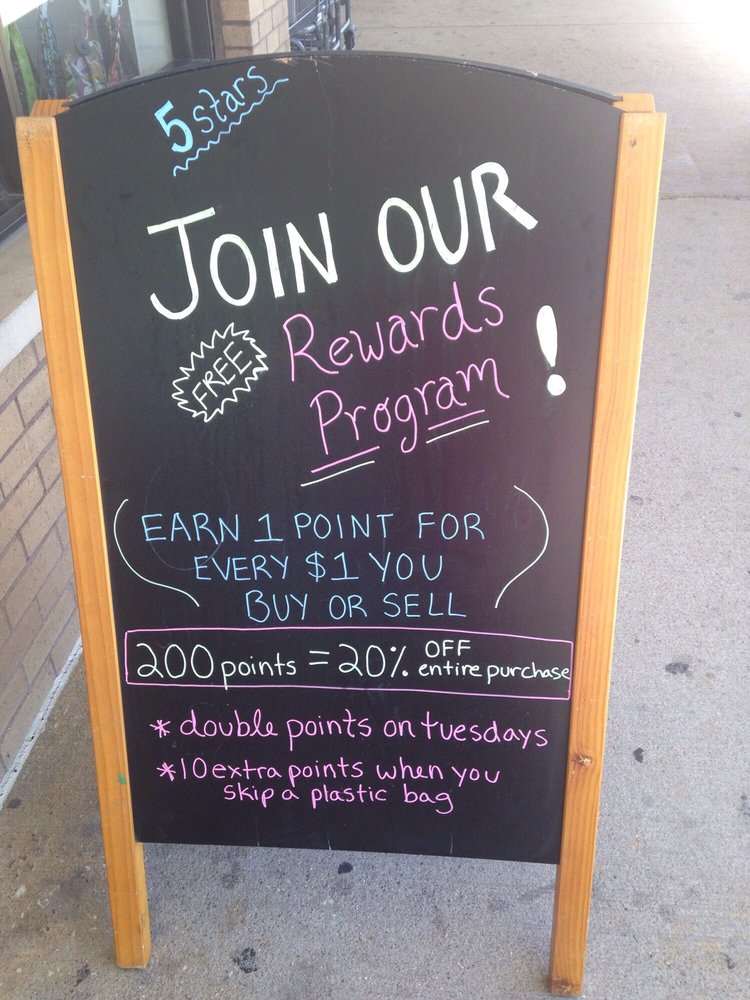 5 stars
JOIN OUR
FREE
Rewards
Program!
EARN 1 POINT FOR
EVERY $1 YOU
BUY OR SELL
200 points = 20% OFF
entire purchase
* double points on tuesdays
* 10 extra points when you
skip a plastic bag